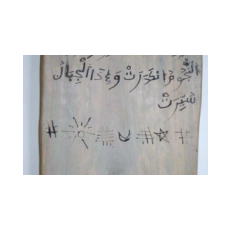 النُّجُومُ انكَدَرَتْ وَإِذَا الْجِبَالُ
سُيِّرَتْ